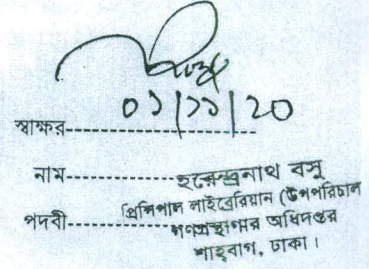 ০১/১১/২০
স্বাক্ষর
নাম হরেন্দ্রনাথ বসু
পদবী প্রিন্সিপাল লাইব্রেরিয়ান (উপপরিচাল
গণগ্রন্থাগার অধিদপ্তর
শাহ্‌বাগ, ঢাকা।